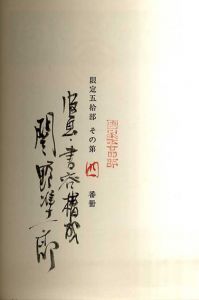 限定五拾部 その第 四 番冊
版画・書容構成
関野凖一郎